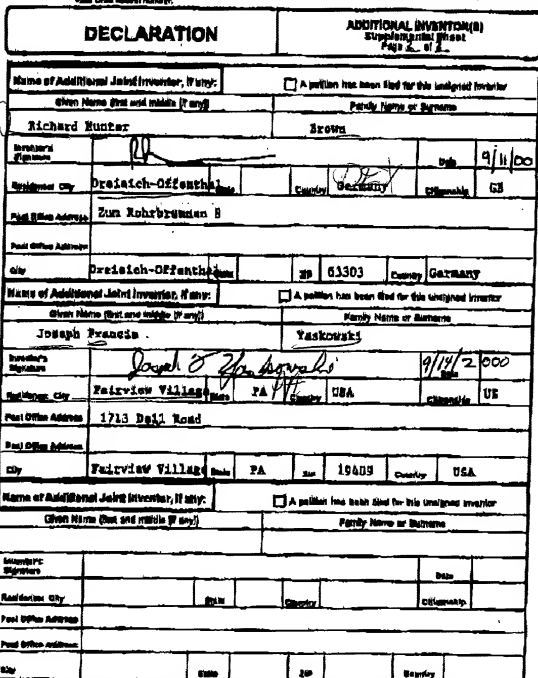 DECLARATION
ADDITIONAL INVENTOR(S)
Supplemental Sheet
Page 2 of 2
Name of Additional Joint Inventor, if any:
A petition has been filed for this unsigned inventor
Given Name (first and middle [if any])
Family Name or Surname
Richard Hunter
Brown
Inventor's Signature
Date
9/11/00
Residence: City
Dreieich-Offenthal
State
Country
Germany
Citizenship
GB
Post Office Address
Zum Rohrbrunnen 8
Post Office Address
City
Dreieich-Offenthal
State
ZIP
63303
Country
Germany
Name of Additional Joint Inventor, if any:
A petition has been filed for this unsigned inventor
Given Name (first and middle [if any])
Family Name or Surname
Joseph Francis
Yaskowski
Inventor's Signature
Joseph F Yaskowski
9/14/2000
Date
Residence: City
Fairview Village
State
PA
Country
USA
Citizenship
US
Post Office Address
1713 Dell Road
Post Office Address
City
Fairview Village
State
PA
ZIP
19409
Country
USA
Name of Additional Joint Inventor, if any:
A petition has been filed for this unsigned inventor
Given Name (first and middle [if any])
Family Name or Surname
Inventor's Signature
Date
Residence: City
State
Country
Citizenship
Post Office Address
Post Office Address
City
State
ZIP
Country